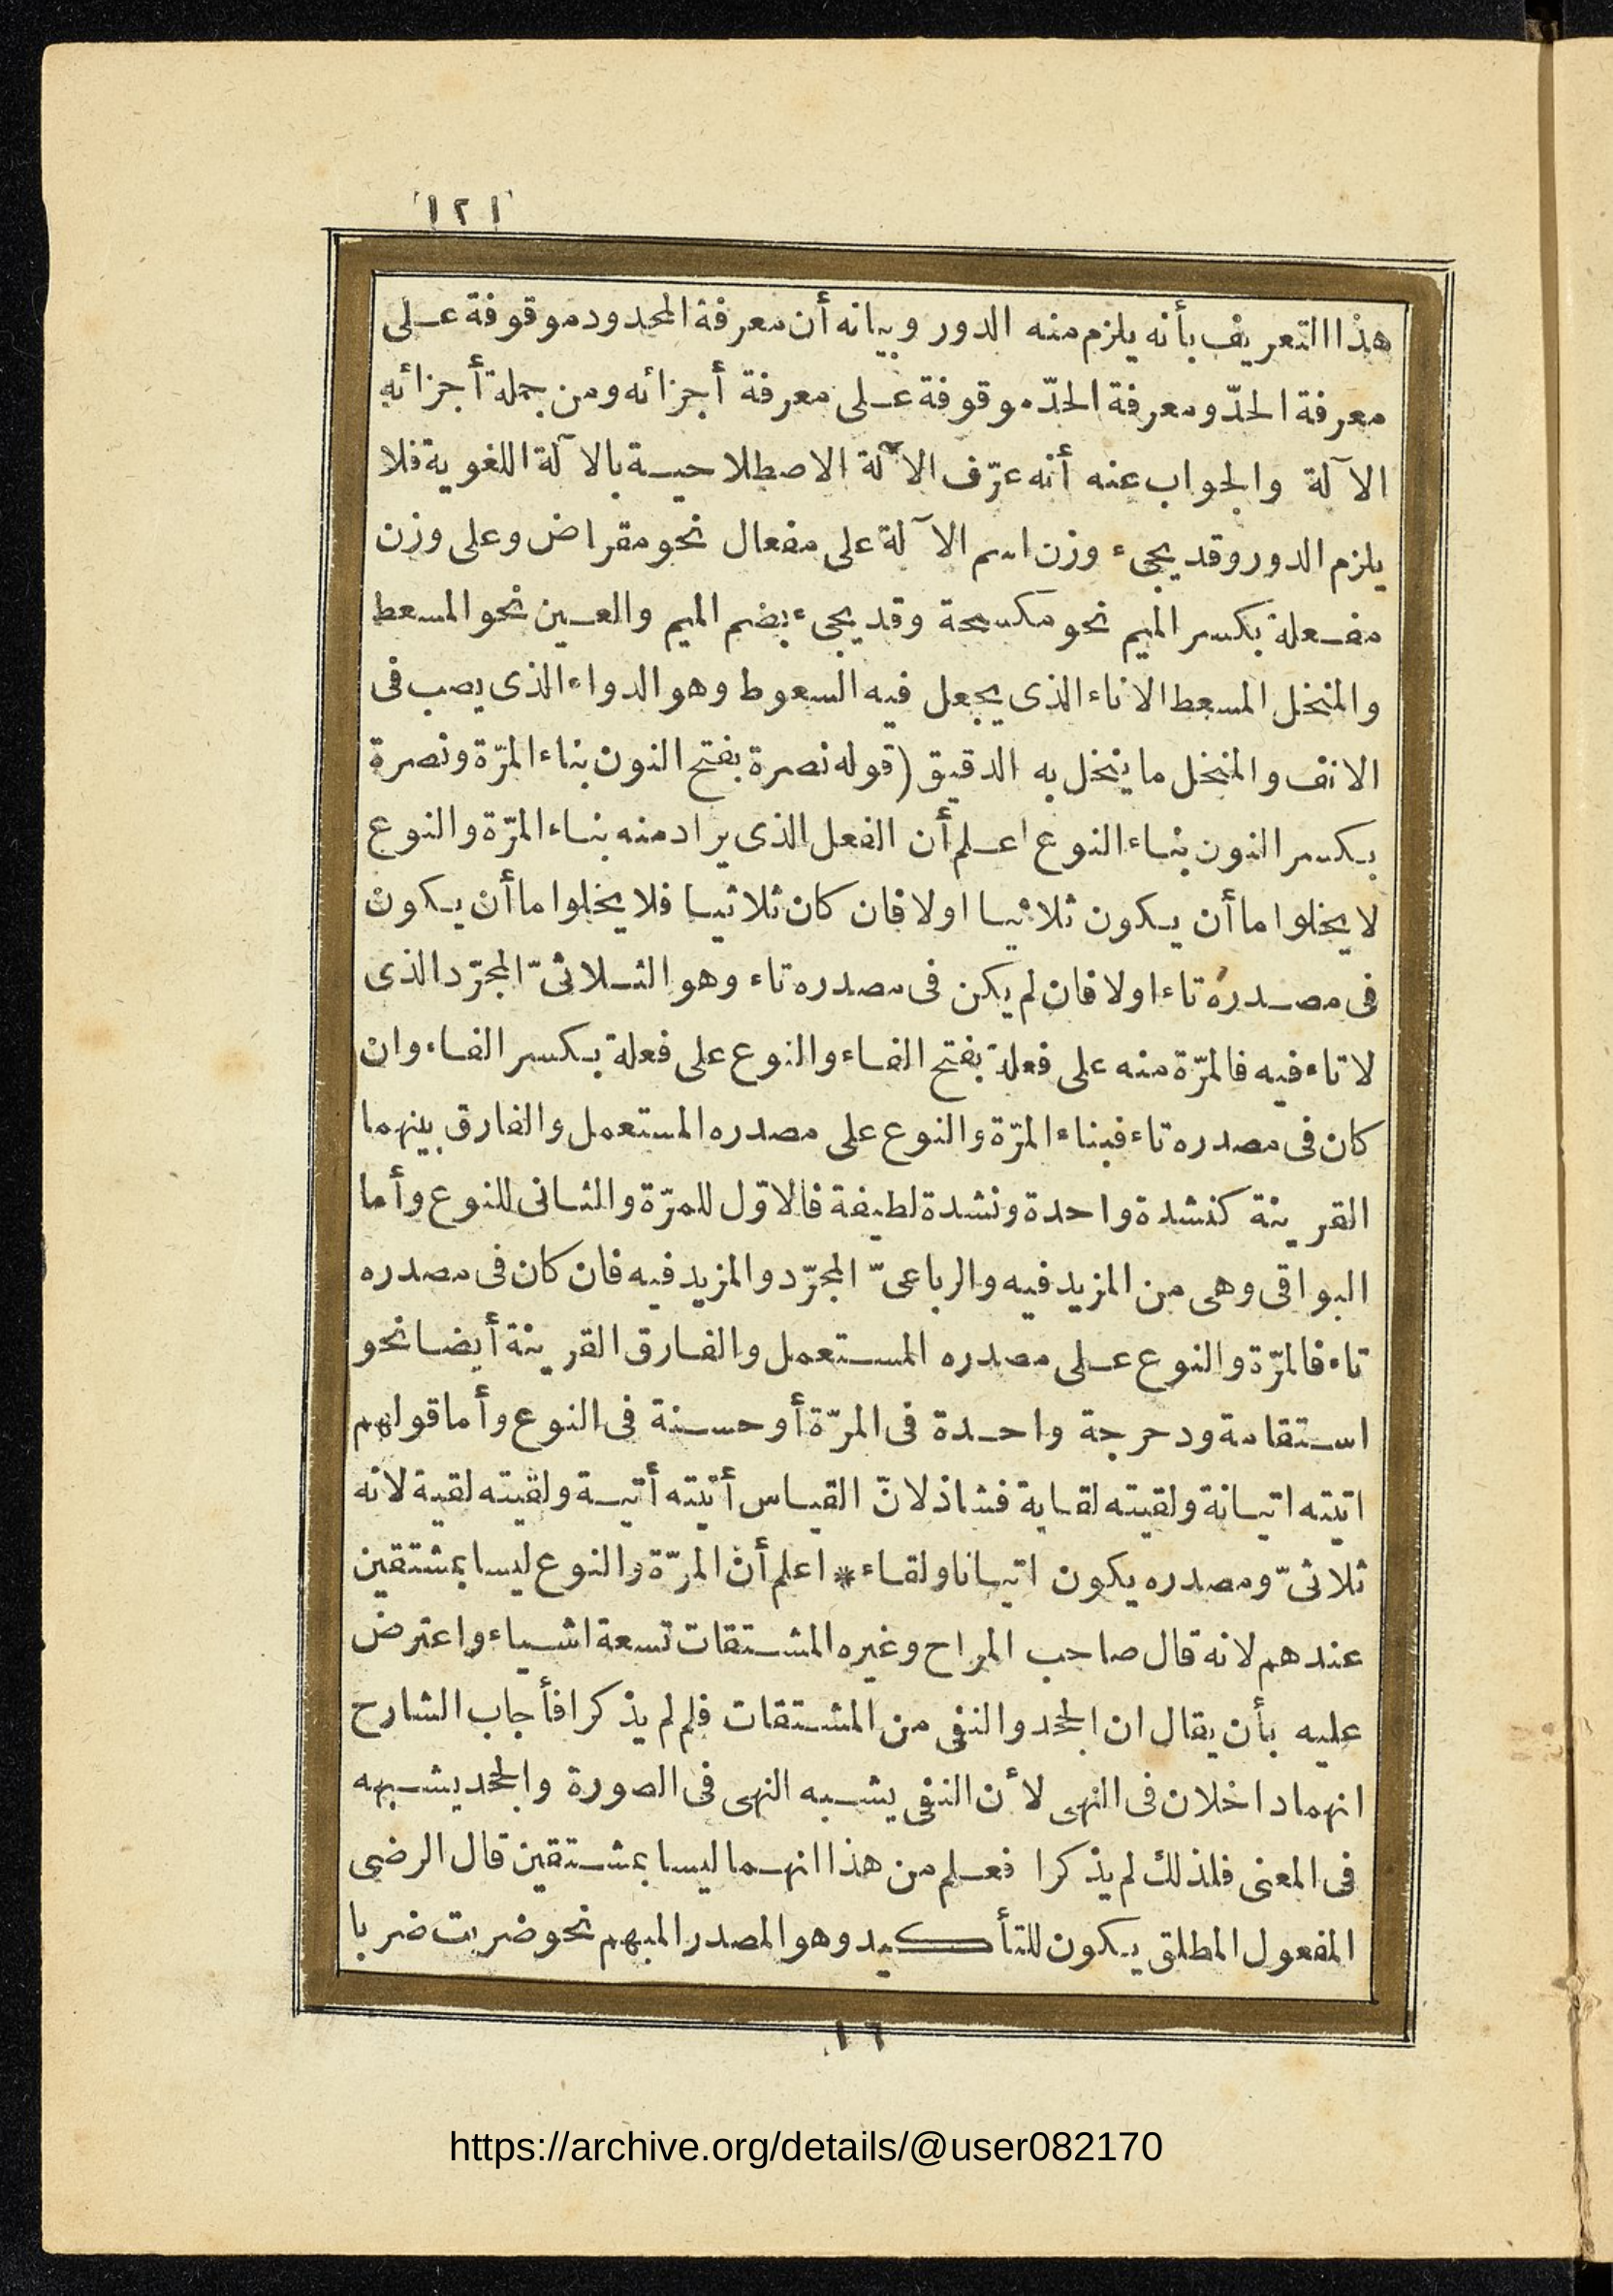 ١٢١
هذا التعريف بأنه يلزم منه الدور وبيانه أن معرفة المحدود موقوفة على
معرفة الحدّ ومعرفة الحدّ موقوفة على معرفة أجزائه ومن جملة أجزائه
الآلة والجواب عنه أنه عرّف الآلة الاصطلاحية بالآلة اللغوية فلا
يلزم الدور وقد يجىء وزن اسم الآلة على مفعال نحو مقراض وعلى وزن
مفعلة بكسر الميم نحو مكسحة وقد يجىء بضم الميم والعين نحو المسعط
والمنخل المسعط الاناء الذى يجعل فيه السعوط وهو الدواء الذى يصب فى
الانف والمنخل ما ينخل به الدقيق (قوله نصرة بفتح النون بناء المرّة ونصرة
بكسر النون بناء النوع اعلم أن الفعل الذى يراد منه بناء المرّة والنوع
لا يخلو اما أن يكون ثلاثيا اولا فان كان ثلاثيا فلا يخلو اما أن يكون
فى مصدره تاء اولا فان لم يكن فى مصدره تاء وهو الثلاثىّ المجرّد الذى
لا تاء فيه فالمرّة منه على فعلة بفتح الفاء والنوع على فعلة بكسر الفاء وان
كان فى مصدره تاء فبناء المرّة والنوع على مصدره المستعمل والفارق بينهما
القرينة كنشدة واحدة ونشدة لطيفة فالاوّل للمرّة والثانى للنوع وأما
البواقى وهى من المزيد فيه والرباعىّ المجرّد والمزيد فيه فان كان فى مصدره
تاء فالمرّة والنوع على مصدره المستعمل والفارق القرينة أيضا نحو
استقامة ودحرجة واحدة فى المرّة أو حسنة فى النوع وأما قولهم
اتيته اتيانة ولقيته لقاية فشاذ لانّ القياس أتيته أتية ولقيته لقية لانه
ثلاثىّ ومصدره يكون اتيانا ولقاء * اعلم أن المرّة والنوع ليسا بمشتقين
عندهم لانه قال صاحب المراح وغيره المشتقات تسعة اشياء واعترض
عليه بأن يقال ان الجحد والنفى من المشتقات فلم لم يذكرا فأجاب الشارح
انهما داخلان فى النهى لأن النفى يشبه النهى فى الصورة والجحد يشبهه
فى المعنى فلذلك لم يذكرا فعلم من هذا انهما ليسا بمشتقين قال الرضى
المفعول المطلق يكون للتأكيد وهو المصدر المبهم نحو ضربت ضربا
١٦
https://archive.org/details/@user082170